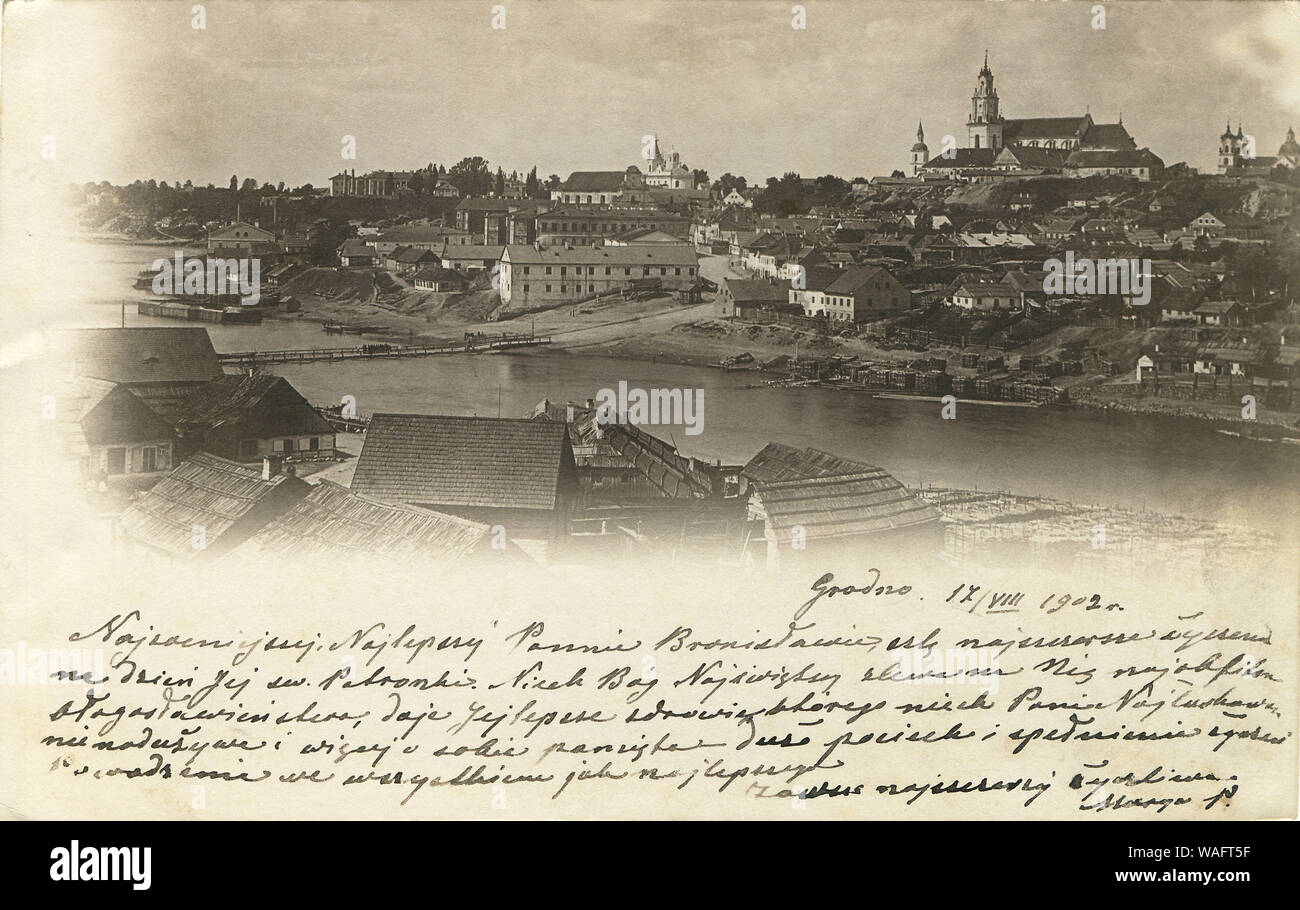 Grodno. 17/VIII 1902 r.
Najzacniejszej, Najlepszej Pannie Bronisławie, ślę najszczersze życzenia
na dzień Jej św. Patronki. Niech Bóg Najświętszy zlewa na Nią najobfitsze
błogosławieństwa, daje Jej lepsze zdrowie, którego niech Pani Najłaskawsza
nie nadużywa i więcej o sobie pamięta duże pociech i spełnienie życzeń
Powodzenie we wszystkiem jak najlepszego
Zawsze najszczerzej życzliwa
Marya P.
alamy
Image ID: WAFT5F
www.alamy.com